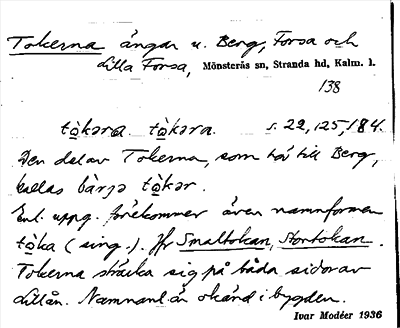 Tokerna ängar u. Berg, Forsa och
Lilla Forsa, Mönsterås sn, Stranda hd, Kalm. l.
138
tò̱kəra. tò̱kəra. s. 22, 125, 184.
Den del av Tokerna, som hör till Berg,
kallas bärjə tò̱kər.
Enl. uppg. förekommer även namnformen
tò̱ka (sing.). Jfr Smaltokan, Stortokan.
Tokerna sträcka sig på båda sidor av
Lillån. Namnant. är okänd i bygden.
Ivar Modéer 1936